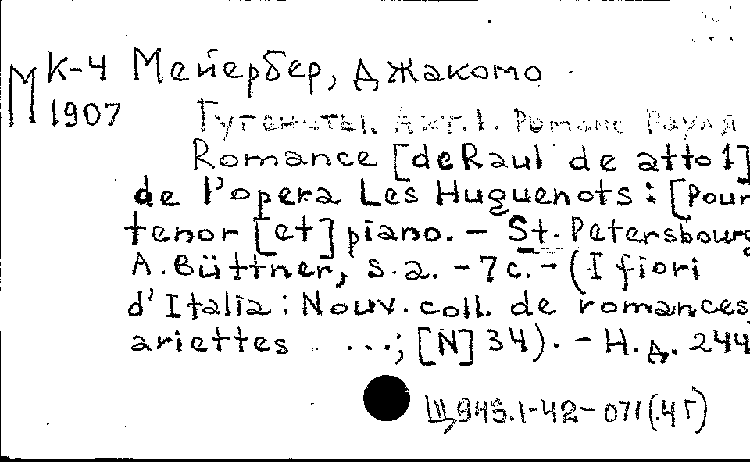 М К-4 Мейербер, Джакомо
1907
Гугеноты. Акт.1. Романс Рауля
Romance [de Raul de atto 1]
de l'opera Les Huguenots : [Pour
tenor [et] piano. – St. Petersbourg
A. Büttner, s.a. – 7 c. – (I fiori
d'Italia : Nouv. coll. de romances,
ariettes ...; [N] 34). – Н.д. 244
Щ945.1-42-071(.4Г)